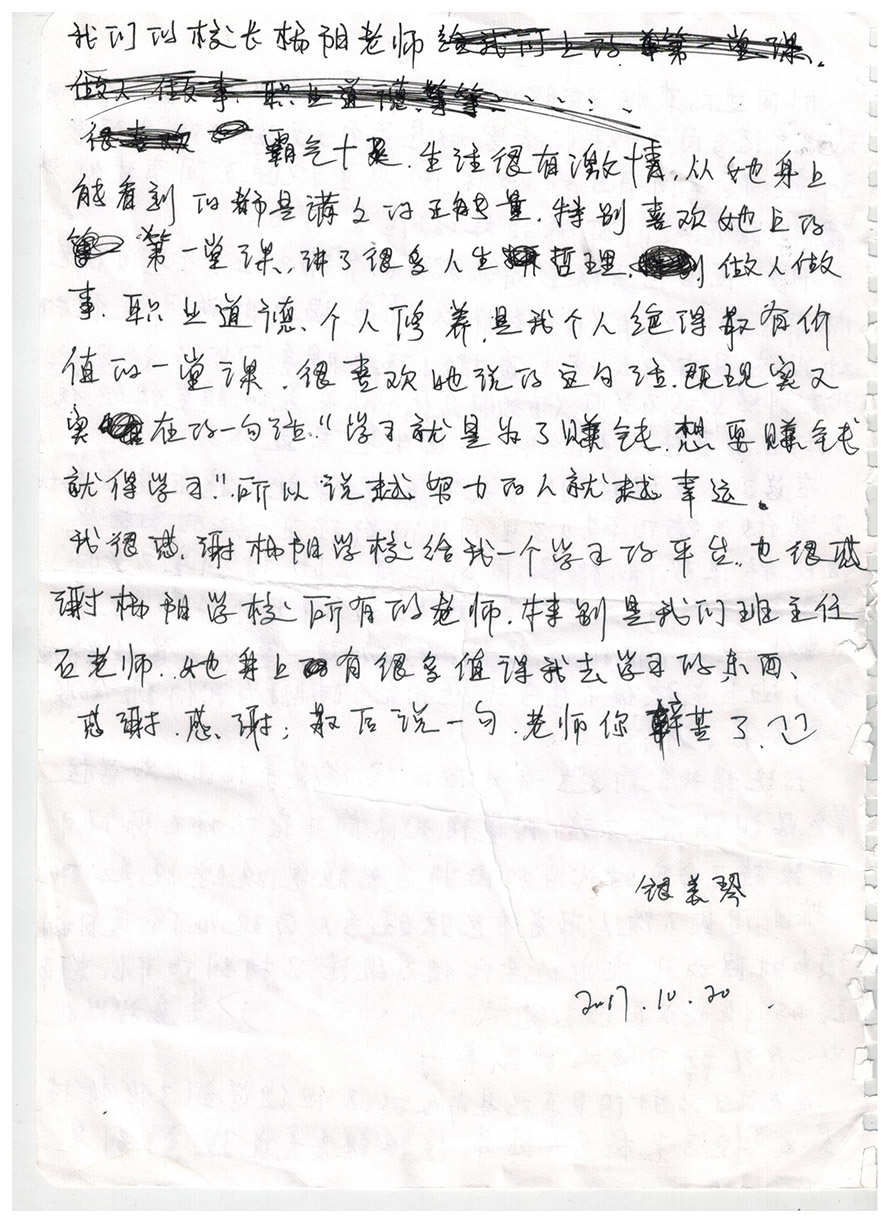 我们的校长杨阳老师给我们上的第一堂课。
做人做事、职业道德等等……
很喜欢 霸气十足、生活很有激情,从她身上
能看到的都是满满的正能量,特别喜欢她上的
第一堂课、讲了很多人生哲理、做人做
事、职业道德、个人修养,是我个人觉得最有价
值的一堂课,很喜欢她说的这句话,既现实又
实在的一句话,“学习就是为了赚钱,想要赚钱
就得学习”,所以说越努力的人就越幸运。
我很感谢杨阳学校给我一个学习的平台,也很感
谢杨阳学校所有的老师,特别是我们班主任
石老师,她身上有很多值得我去学习的东西、
感谢、感谢;最后说一句,老师你辛苦了,
美琴
2017.10.20